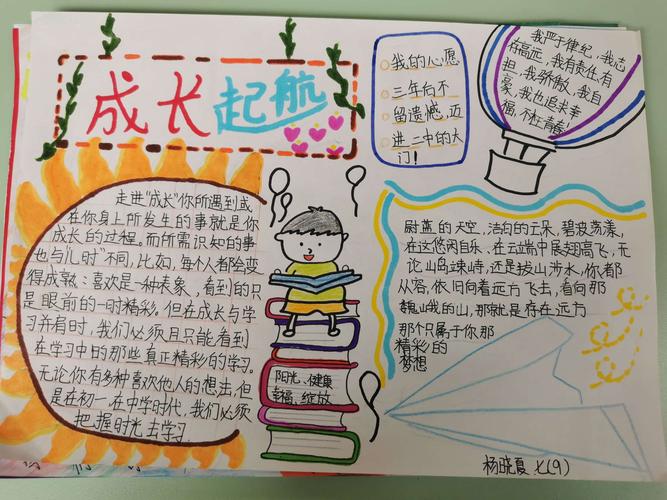 成长起航
我的心愿
三年后不
留遗憾,迈
进二中的大
门!
我严于律纪,我志
存高远,我有责任,有
担,我骄傲,我自
豪,我也追求幸
福,不枉青春!
走进“成长”你所遇到或
在你身上所发生的事就是你
成长的过程。而所需识知的事
也与儿时不同,比如,每个人都会变
得成熟:喜欢是一种表象,看到的只
是眼前的一时精彩。但在成长与学
习并有时,我们必须且只能看到
在学习中的那些真正精彩的学习。
无论你有多种喜欢他人的想法,但
是在初一,在中学时代,我们必须
把握时光去学习
阳光、健康
幸福、绽放
尉蓝的天空,洁白的云朵,碧波荡漾,
在这悠闲自乐、在云端中展翅高飞,无
论山鸟竦峙,还是拔山涉水,你都
从容,依旧向着远方飞去,看向那
巍山峨的山,那就是存在远方
那个只属于你那
精彩的
梦想
杨晓夏 七(9)